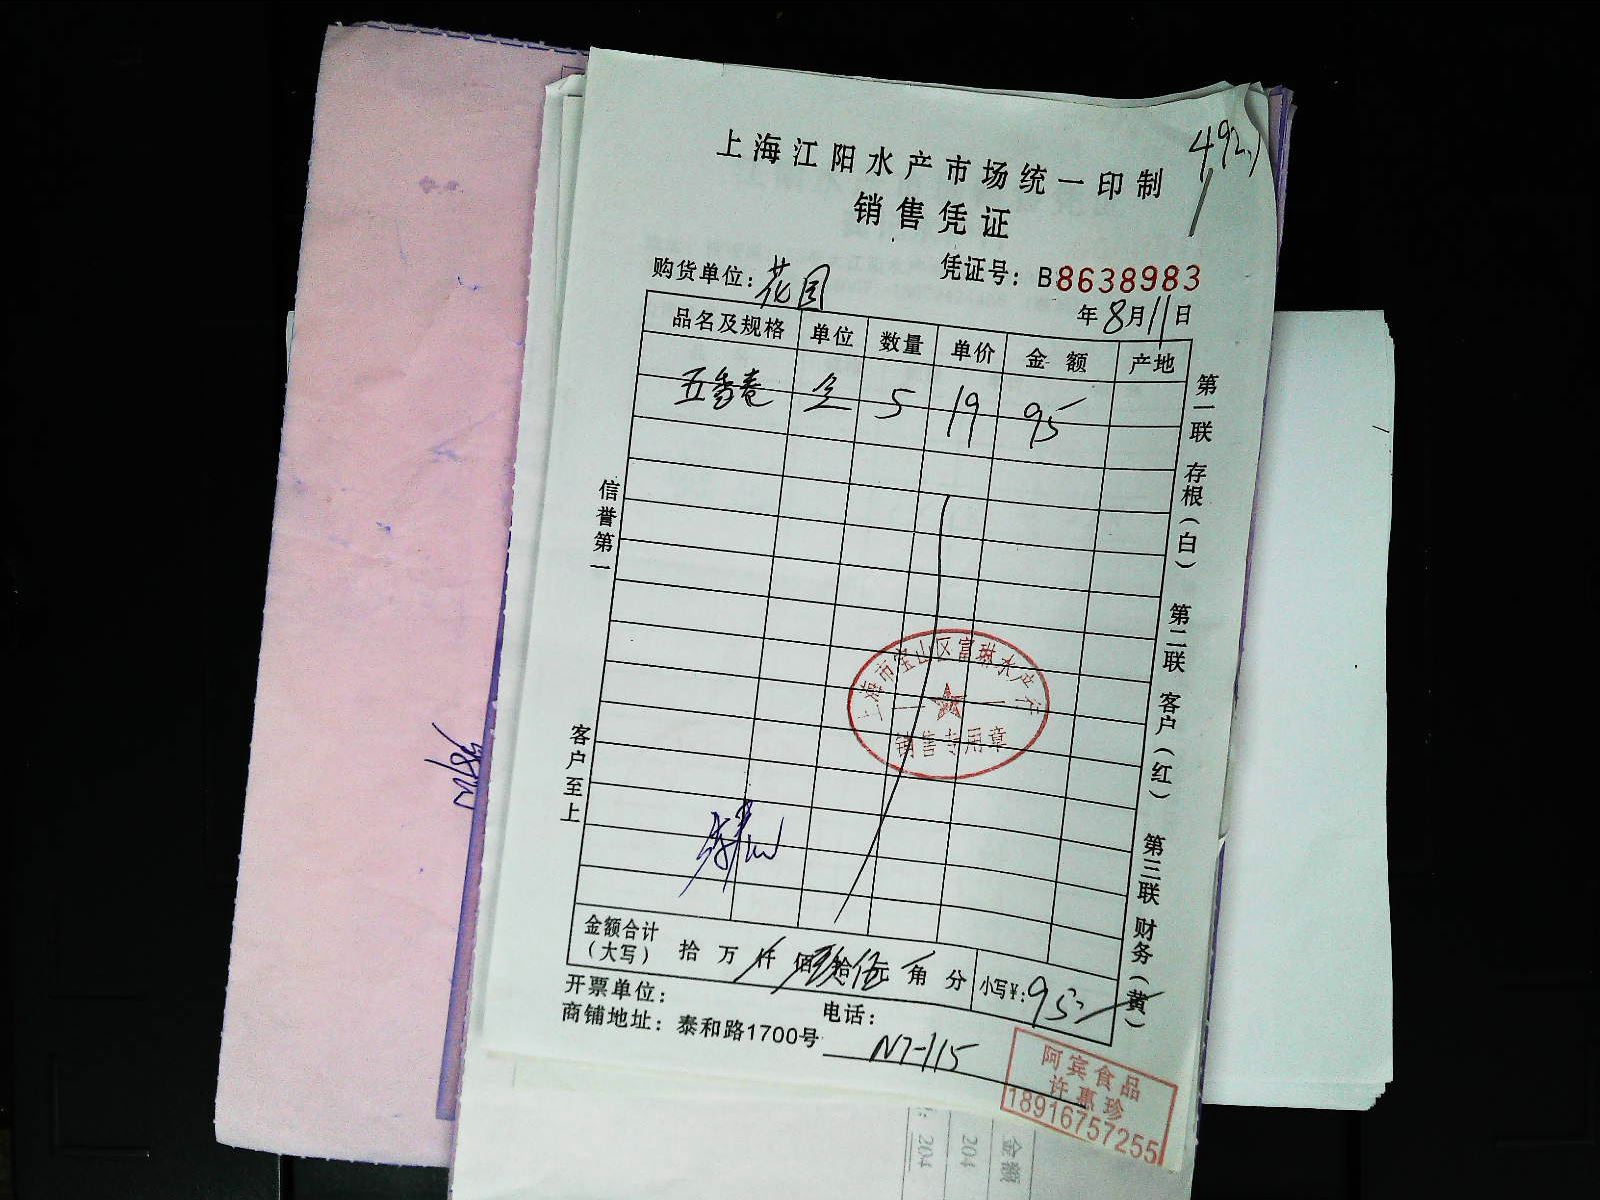 上海江阳水产市场统一印制
销售凭证
凭证号：B8638983
购货单位：花园
年8月11日
品名及规格 单位 数量 单价 金额 产地
五香卷 5 19 95
第一联 存根（白） 第二联 客户（红） 第三联 财务（黄）
信誉第一
客户至上
上海市宝山区富琳水产行
销售专用章
金额合计（大写） 拾 万 仟 佰 玖拾伍元 角 分 小写¥：95
开票单位：
电话：
商铺地址：泰和路1700号 N7-115
阿宾食品
许惠珍
18916757255
金额
204
204